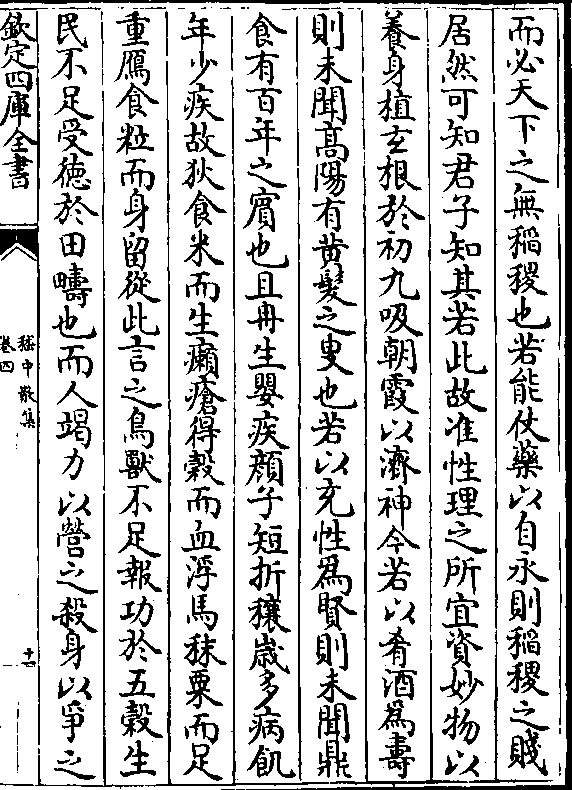 而必天下之無稻稷也若能仗藥以自永則稻稷之賤
居然可知君子知其若此故准性理之所宜資妙物以
養身植玄根於初九吸朝霞以濟神今若以肴酒為壽
則未聞髙陽有黄髮之叟也若以充性為賢則未聞鼎
食有百年之賔也且冉生嬰疾顔子短折穰歳多病飢
年少疾故狄食米而生癩瘡得榖而血浮馬秣粟而足
重鴈食粒而身留從此言之鳥獸不足報功於五榖生
民不足受徳於田疇也而人竭力以營之殺身以爭之
欽定四庫全書
嵇中散集
卷四
十一